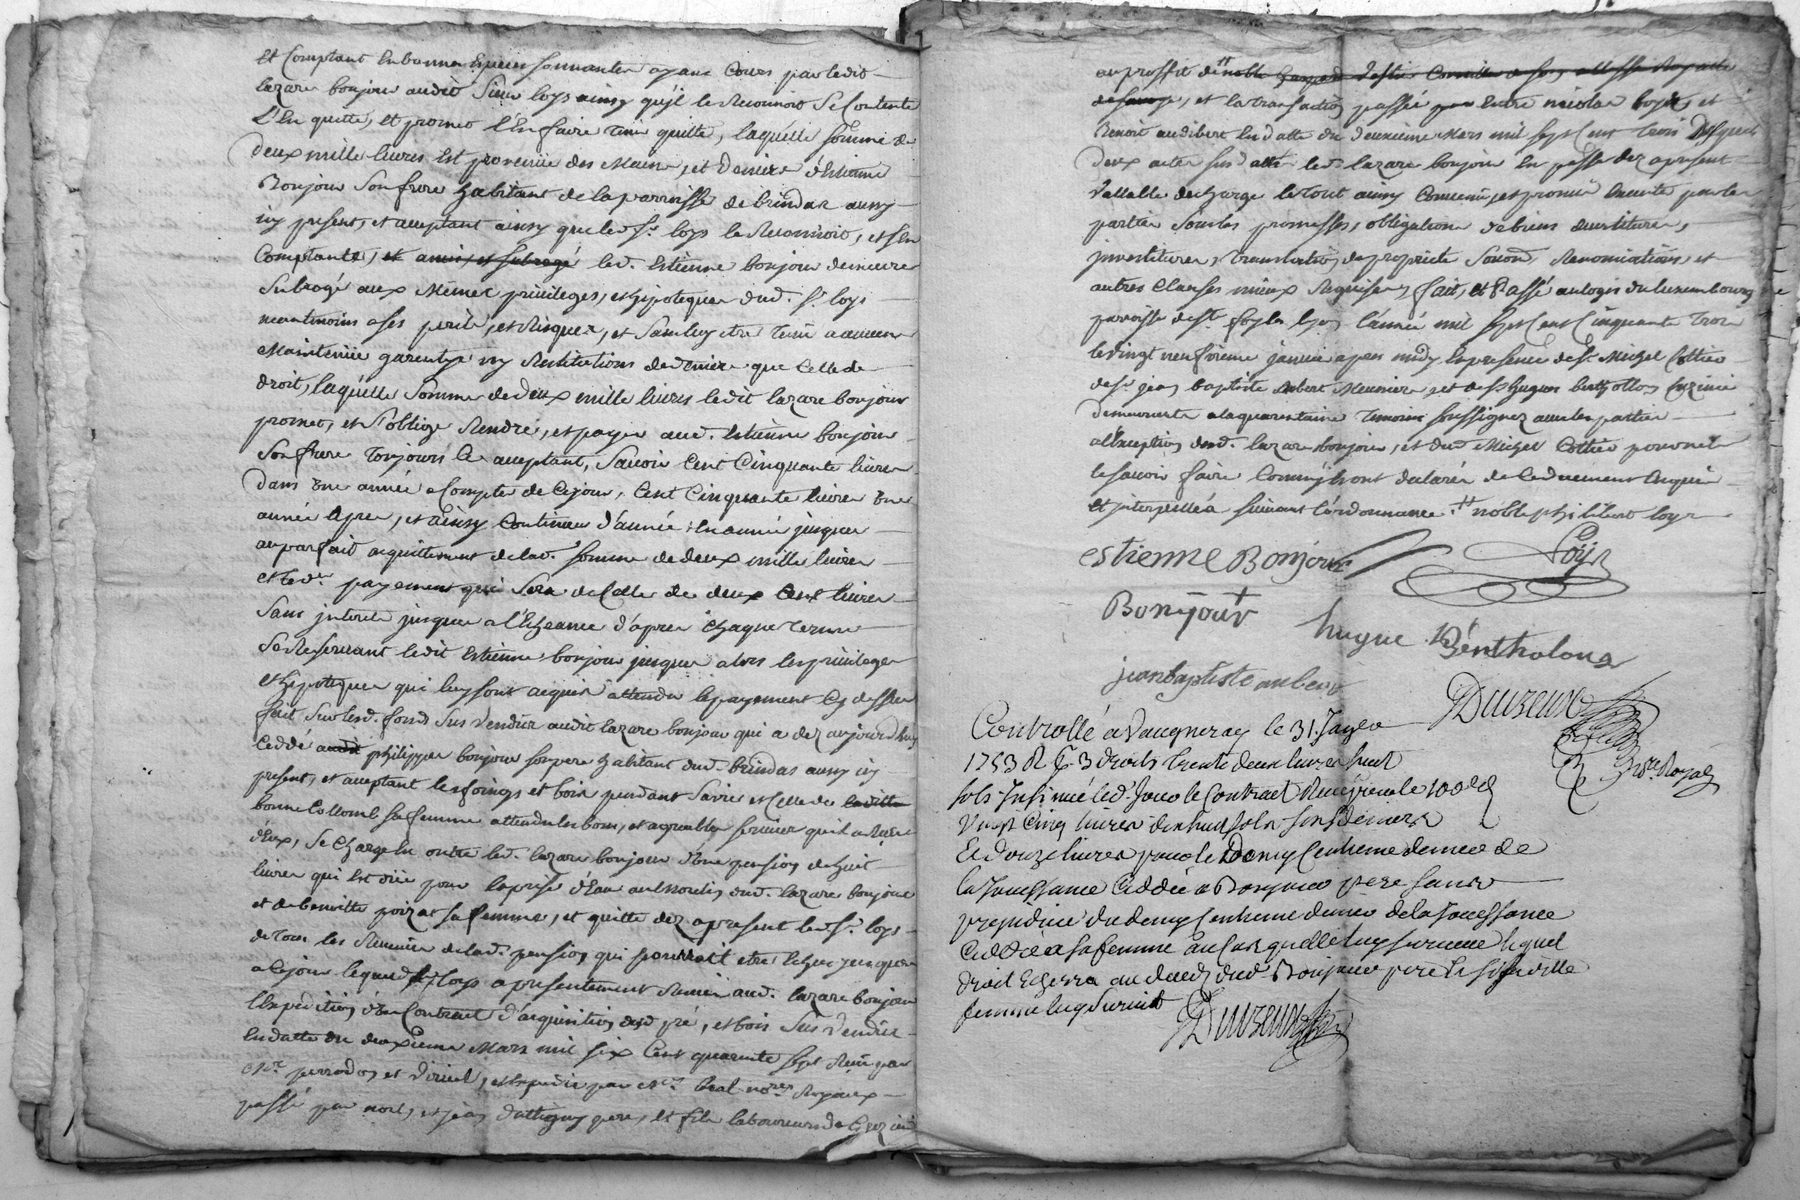 et Comptant en bonnes Especes sonnantes ayant Cours par ledit
lazare bonjour audit Sieur loys ainsy qu'jl le Reconnoit Se Contente
L'En quitte, et promet l'En faire Tenir quitte, laquelle somme de
deux mille livres Est provenüe des Mains, et Deniers d'Estienne
Bonjour Son frere habitant de la parroisse de brindas aussy
icy present, et acceptant ainsy que led. Sr. loys le Reconnoit, et s'En
Contente, et led. Estienne bonjour demeure
Subrogé aux Mêmes privileges, et hipoteques dud. Sr. loys
neantmoins a ses perils, et Risques, et Sans luy etre Tenu a aucune
Maintenüe garentye ny Restitution de deniers que Celle de
droit, laquelle Somme de deux mille livres ledit lazare bonjour
promet, et s'oblige Rendre, et payer aud. Estienne bonjour
Son frere Toujours Ce acceptant, Savoir Cent Cinquante livres
dans une année a Compter de Cejour, Cent Cinquante livres une
année apres, et ainsy Continuer d'année en année jusques
au parfait acquittement de lad. Somme de deux mille livres
et le dr. payement qui Sera de Celle de deux Cent livres
Sans jnterest jusques a l'Echeance d'apres Chaque Terme
Se Reservant ledit Estienne bonjour jusques alors les privileges
et hipoteques qui luy sont acquis attendu le payement Cy dessus
fait Sur lesd. fonds Sus vendus audit lazare bonjour qui a dez aujourd'huy
Ceddé philippe bonjour son pere habitant dud. brindas aussy icy
present, et acceptant les foings et bois pendant Savie et Celle de
bonne Collomb Sa femme attendu les bons, et agreables services qu'il a Receu
d'Eux, Se Charge En outre led. lazare bonjour d'une pension de huit
livres qui Est düe pour la prise d'Eau au Moulin dud. lazare bonjour
et de benoitte poizat sa femme, et quitte dez apresent led. Sr. loys
de Tous les Revenus de lad. pension qui pourroit etre Echus jusques
a Cejour lequel Sr. loys a presentement Remis aud. lazare bonjour
l'Expedition d'un Contrat d'acquisition dud. pré, et bois Sus vendus
En datte du deuxieme Mars mil six Cent quarente Sept Reçu par
Me. perrodon et et Expedié par Me. Real nores. Royaux
passé par noel, et jean dattigny pere, et fils laboureurs de
au proffit de
de Savoye, et la transaction passée Entre nicolas boyer, et
Benoit audibert En datte du deuxieme Mars mil Sept Cent Trois Desquels
deux actes sus dattés led. lazare bonjour En passe dez apresent
Vallable decharge le Tout ainsy Convenu, et promis Executer par les
parties Sous les promesses, obligation de biens
jnvestitures, Translation de propriete Renonciations, et
autres Clauses mieux Requises, fait, et Passé au logis du luxembourg
parroisse de St. foy les lyon l'année mil Sept Cent Cinquante Trois
le vingt neufvieme janvier apres midy En presence de Sr. Michel Cottier
de Sr. jean baptiste Aubert Meunier, et de Sr. hugue
demeurants a la quarentaine Temoins Soussignez avec les parties
a l'Exception dud. lazare bonjour, et dud. Michel Cottier pour ne
le savoir faire Comme jls ont declaré de Ce duement Enquis
et jnterpellés suivant l'ordonnance. noble philibert loys
estienne Bonjour Loÿs
Bonjour hugue Bentholons
jean baptiste aubert
Duvzeux
Nre. Royal
Controllé a Vaugneray le 31. Janv.
1753 R. 3 droits Trente deux livres huit
sols Insinué led. Jour le Contract Reçu
Vingt Cinq livres dix huit sols
Et douze livres pour le Demy Centieme denier de
la Jouissance Ceddée a Bonjour pere Sans
prejudice du demy Centieme denier de la Jouissance
Ceddée a sa femme au Cas quelle luy Survive lequel
droit Echerra au deced dud. Bonjour pere Si sa
femme luy Survit
Duvzeux